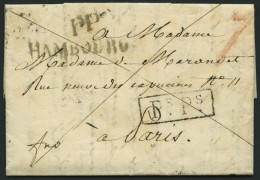 PP.
HAMBOURG
A Madame
Madame de
Rue neuve des capucines No 11
T.S.P.S.
a Paris.